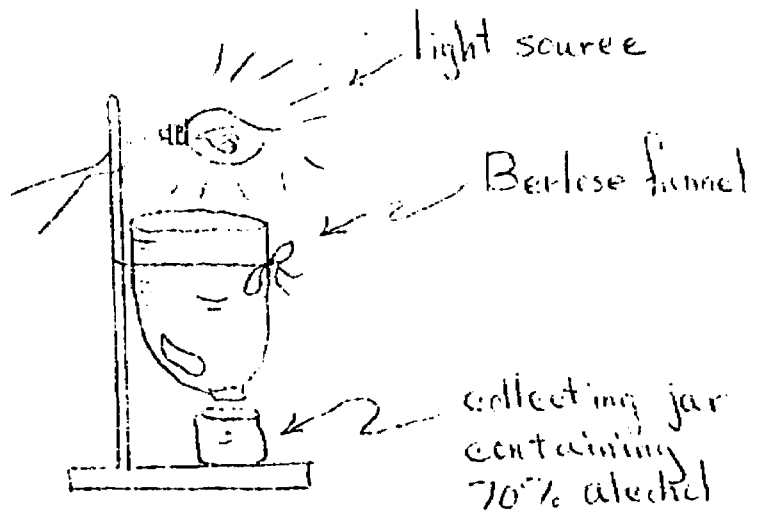 light source
Berlese funnel
collecting jar
containing
70% alcohol